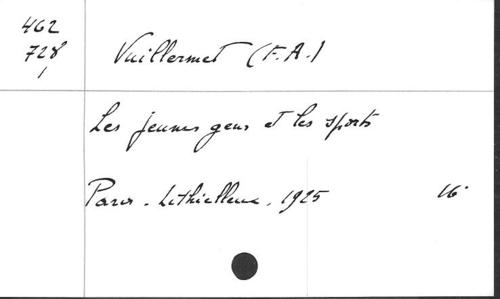 462
728
1
Vuillermet (F.A.)
Les jeunes gens et les sports
Paris. Lethielleux. 1925 16°